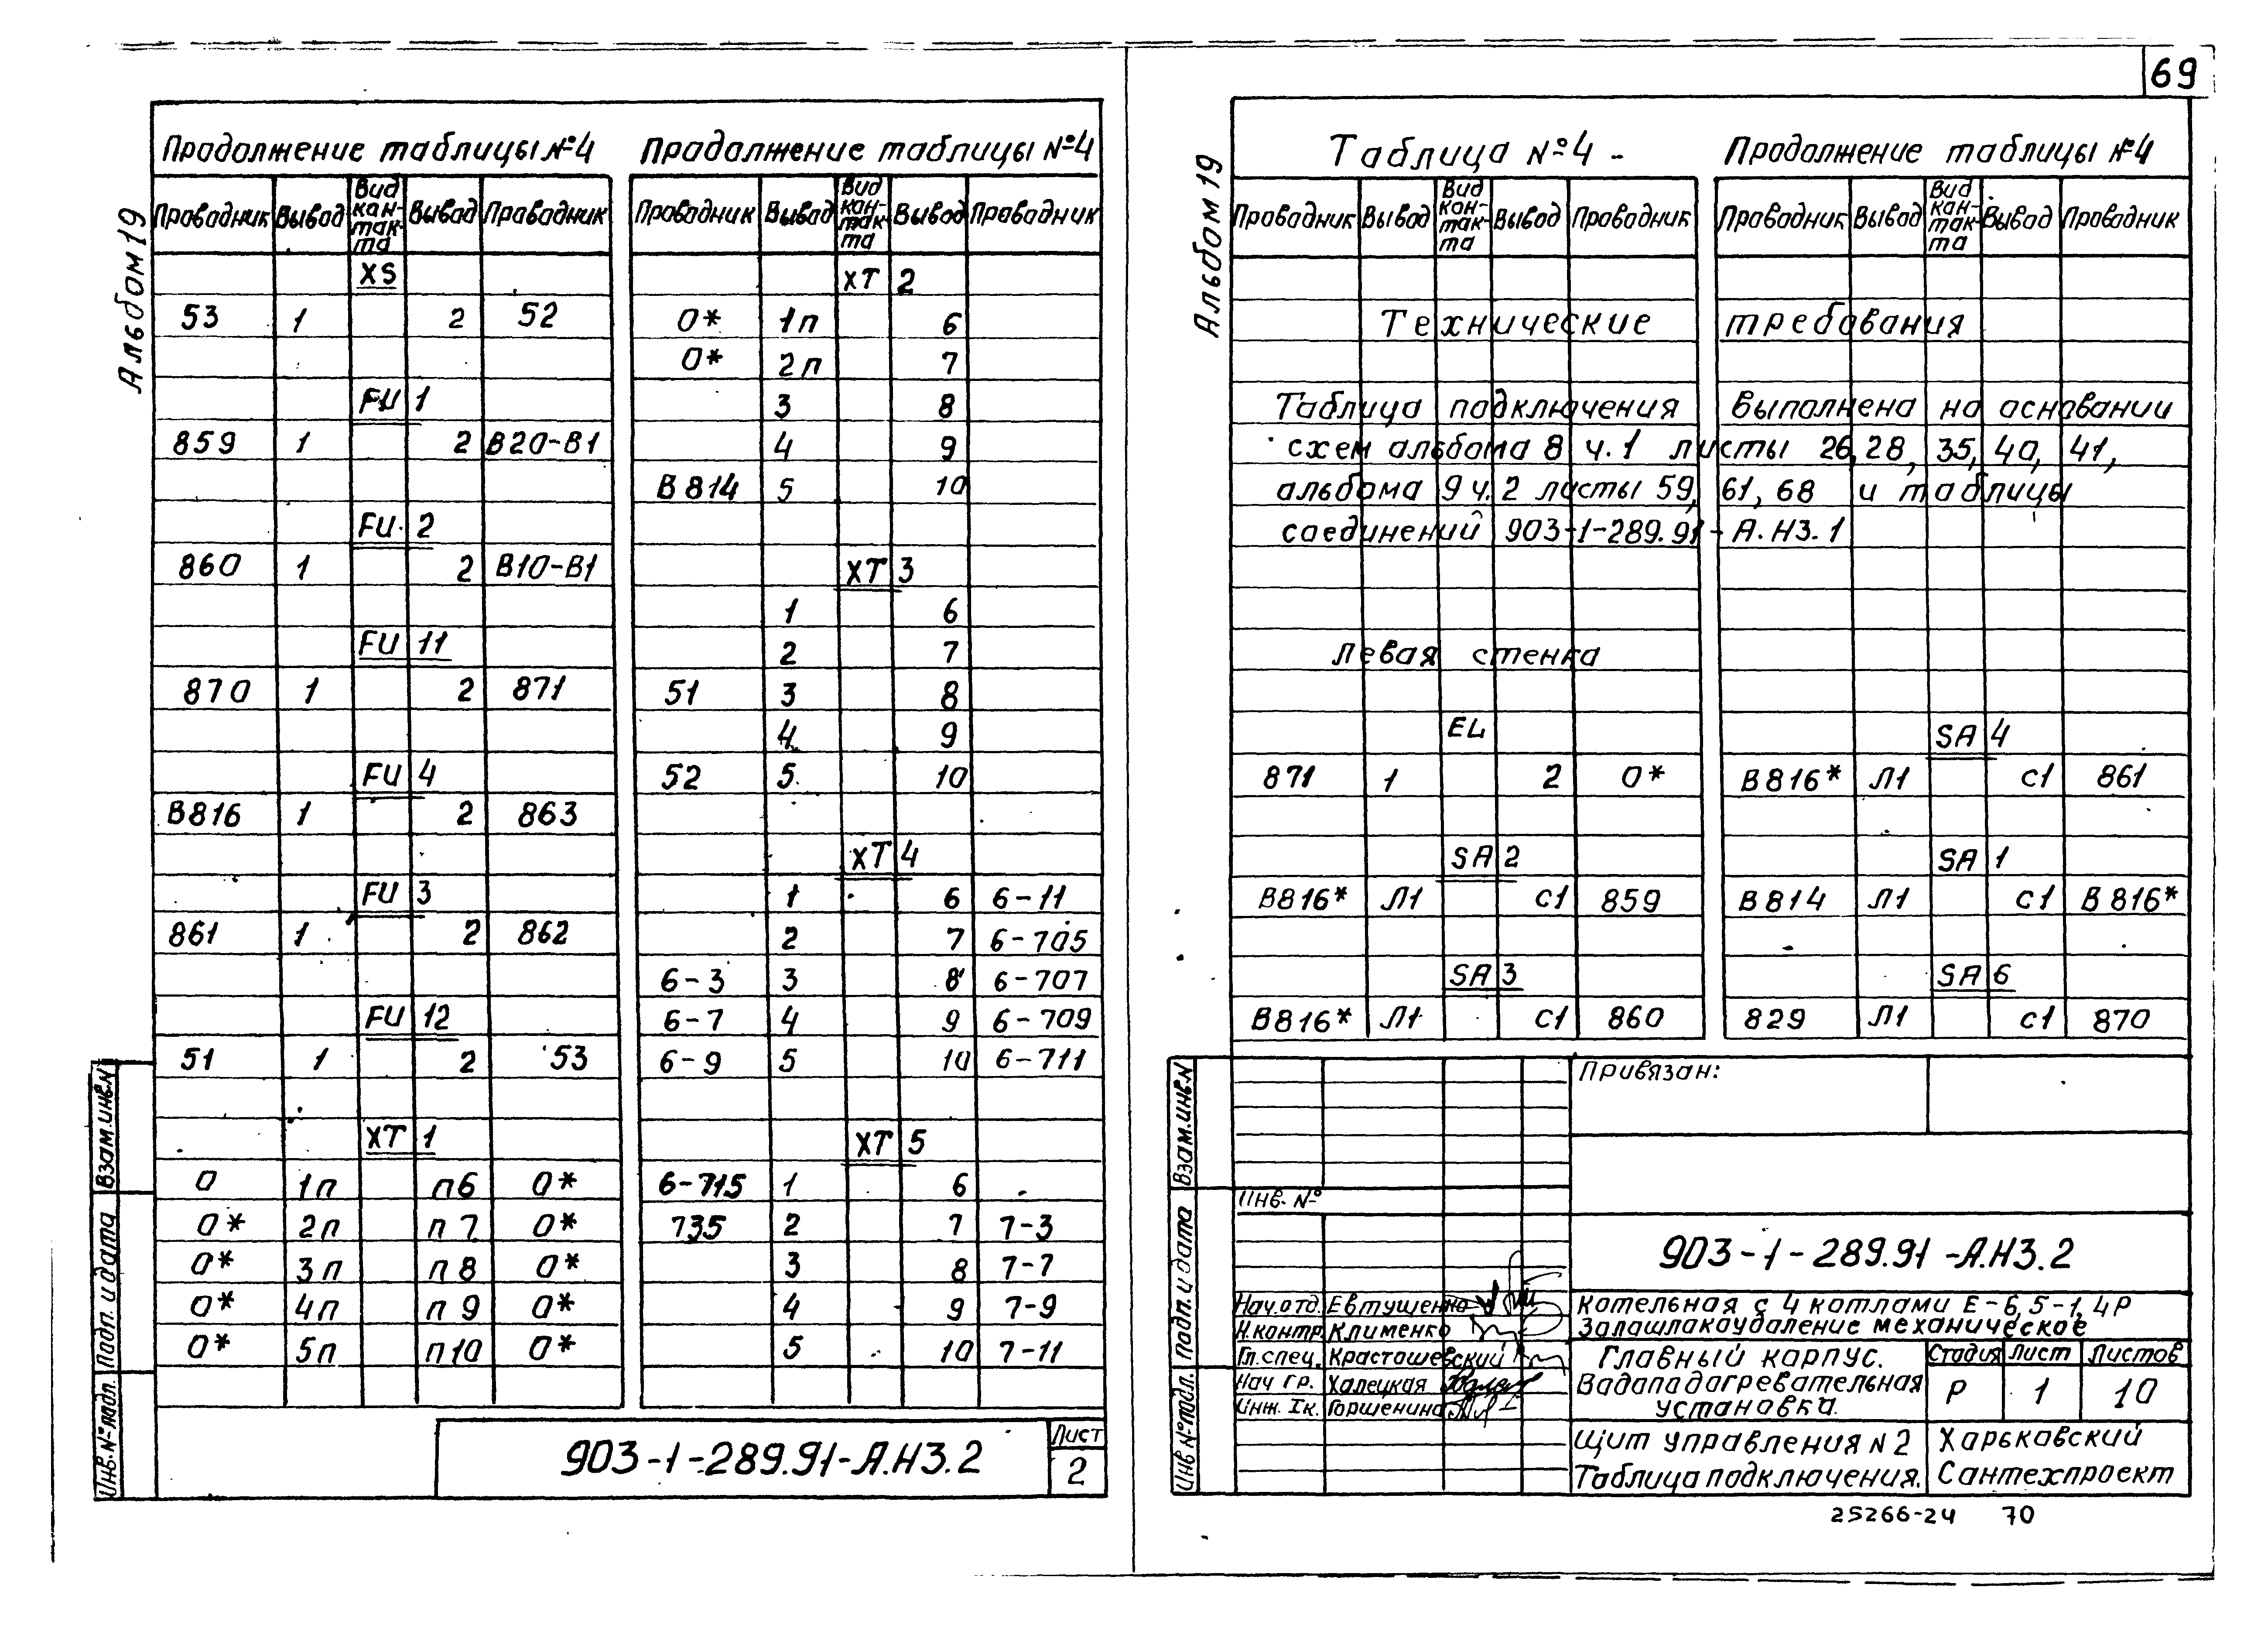 69
Альбом 19
Продолжение таблицы №4
Проводник Вывод Вид контакта Вывод Проводник
XS
53 1 2 52
FU 1
859 1 2 В20-В1
FU 2
860 1 2 В10-В1
FU 11
870 1 2 871
FU 4
В816 1 2 863
FU 3
861 1 2 862
FU 12
51 1 2 53
XT 1
0 1п п6 0*
0* 2п п7 0*
0* 3п п8 0*
0* 4п п9 0*
0* 5п п10 0*
Продолжение таблицы №4
Проводник Вывод Вид контакта Вывод Проводник
XT 2
0* 1п 6
0* 2п 7
3 8
4 9
В814 5 10
XT 3
1 6
2 7
51 3 8
4 9
52 5 10
XT 4
1 6 6-11
2 7 6-705
6-3 3 8 6-707
6-7 4 9 6-709
6-9 5 10 6-711
XT 5
6-715 1 6
735 2 7 7-3
3 8 7-7
4 9 7-9
5 10 7-11
Взам.инв.N
Подп. и дата
Инв.№подл.
903-1-289.91-А.НЗ.2
Лист
2
Альбом 19
Таблица №4 -
Продолжение таблицы №4
Проводник Вывод Вид контакта Вывод Проводник
Проводник Вывод Вид контакта Вывод Проводник
Технические требования
Таблица подключения выполнена на основании
схем альбома 8 ч.1 листы 26, 28, 35, 40, 41,
альбома 9 ч.2 листы 59, 61, 68 и таблицы
соединений 903-1-289.91-А.НЗ.1
левая стенка
EL
871 1 2 0*
SA 2
В816* Л1 с1 859
SA 3
В816* Л1 с1 860
SA 4
В816* Л1 с1 861
SA 1
В814 Л1 с1 В816*
SA 6
829 Л1 с1 870
Взам.инв.N
Подп. и дата
Инв №подл.
Привязан:
Инв. №
903-1-289.91-А.НЗ.2
Нач.отд. Евтушенко
Н.контр. Клименко
Гл.спец. Красташевский
Нач гр. Халецкая
Инж. Iк. Горшенина
Котельная с 4 котлами Е-6,5-1,4Р
Золошлакоудаление механическое
Главный корпус.
Водоподогревательная
установка.
Стадия Лист Листов
Р 1 10
Щит управления N2
Таблица подключения.
Харьковский
Сантехпроект
25266-24 70